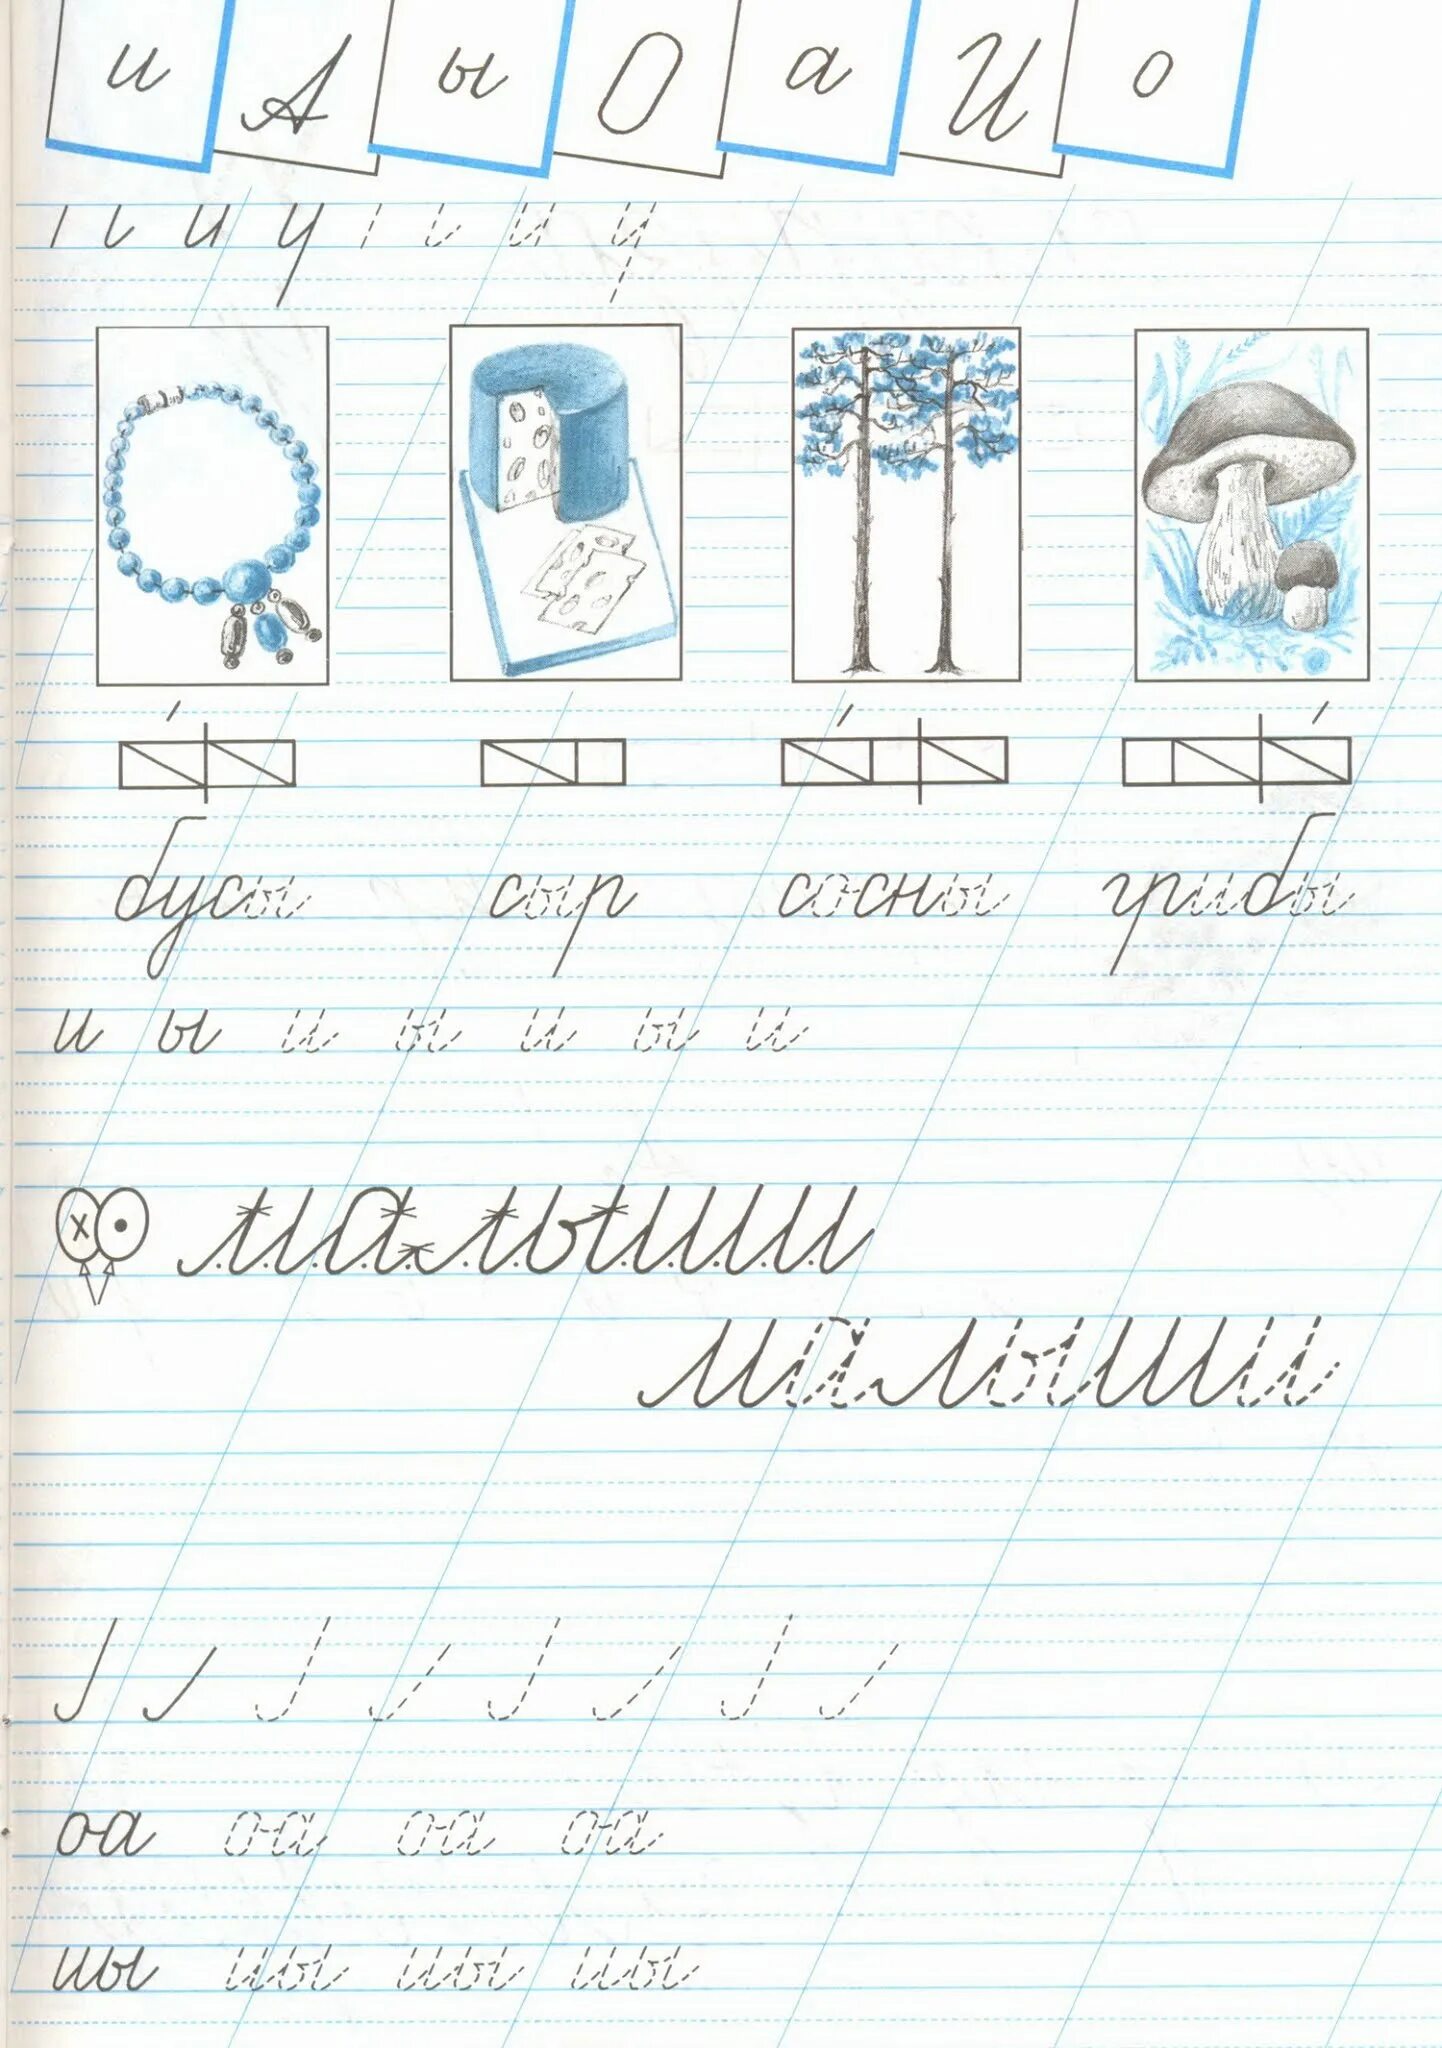 и А ы О а И о
бусы сыр сосны грибы
и ы и ы и ы и
малыши
малыши
оа оа оа оа
иы иы иы иы